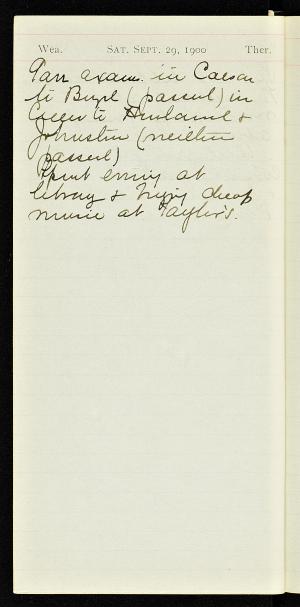 Wea. SAT. SEPT. 29, 1900 Ther.
Gave exam. in Caesar
to Byrl (passed) in
to &
Johnston (neither
passed)
Spent evning at
library & trying cheap
music at Taylor's.